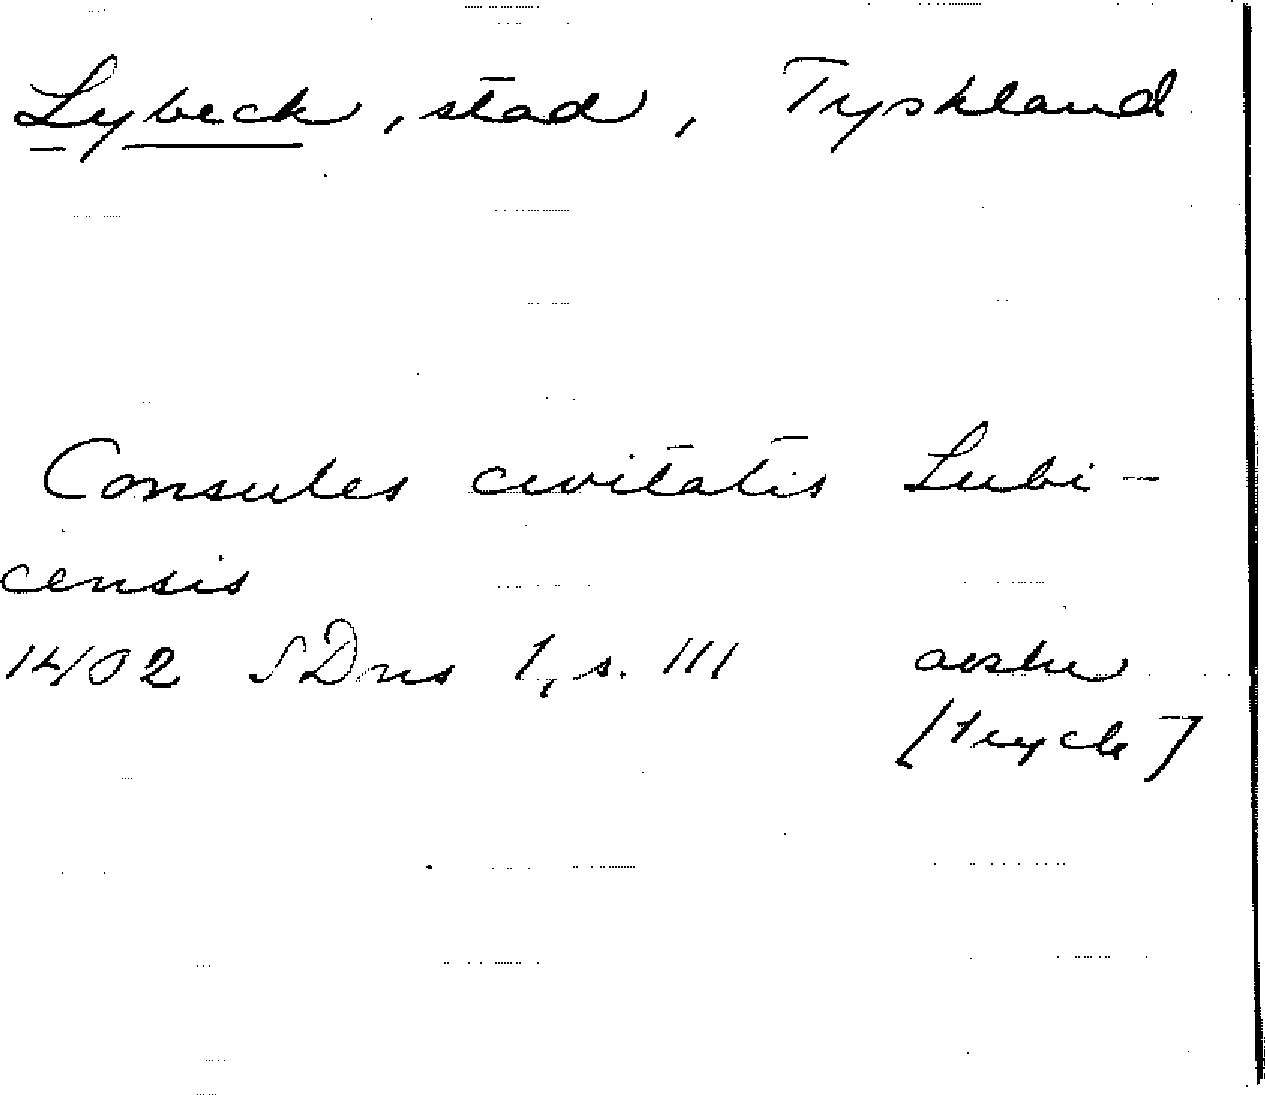 Lybeck, stad, Tyskland
Consules civitatis Lubi-
censis
1402 SDns 1, s. 111 avskr
[tryck]